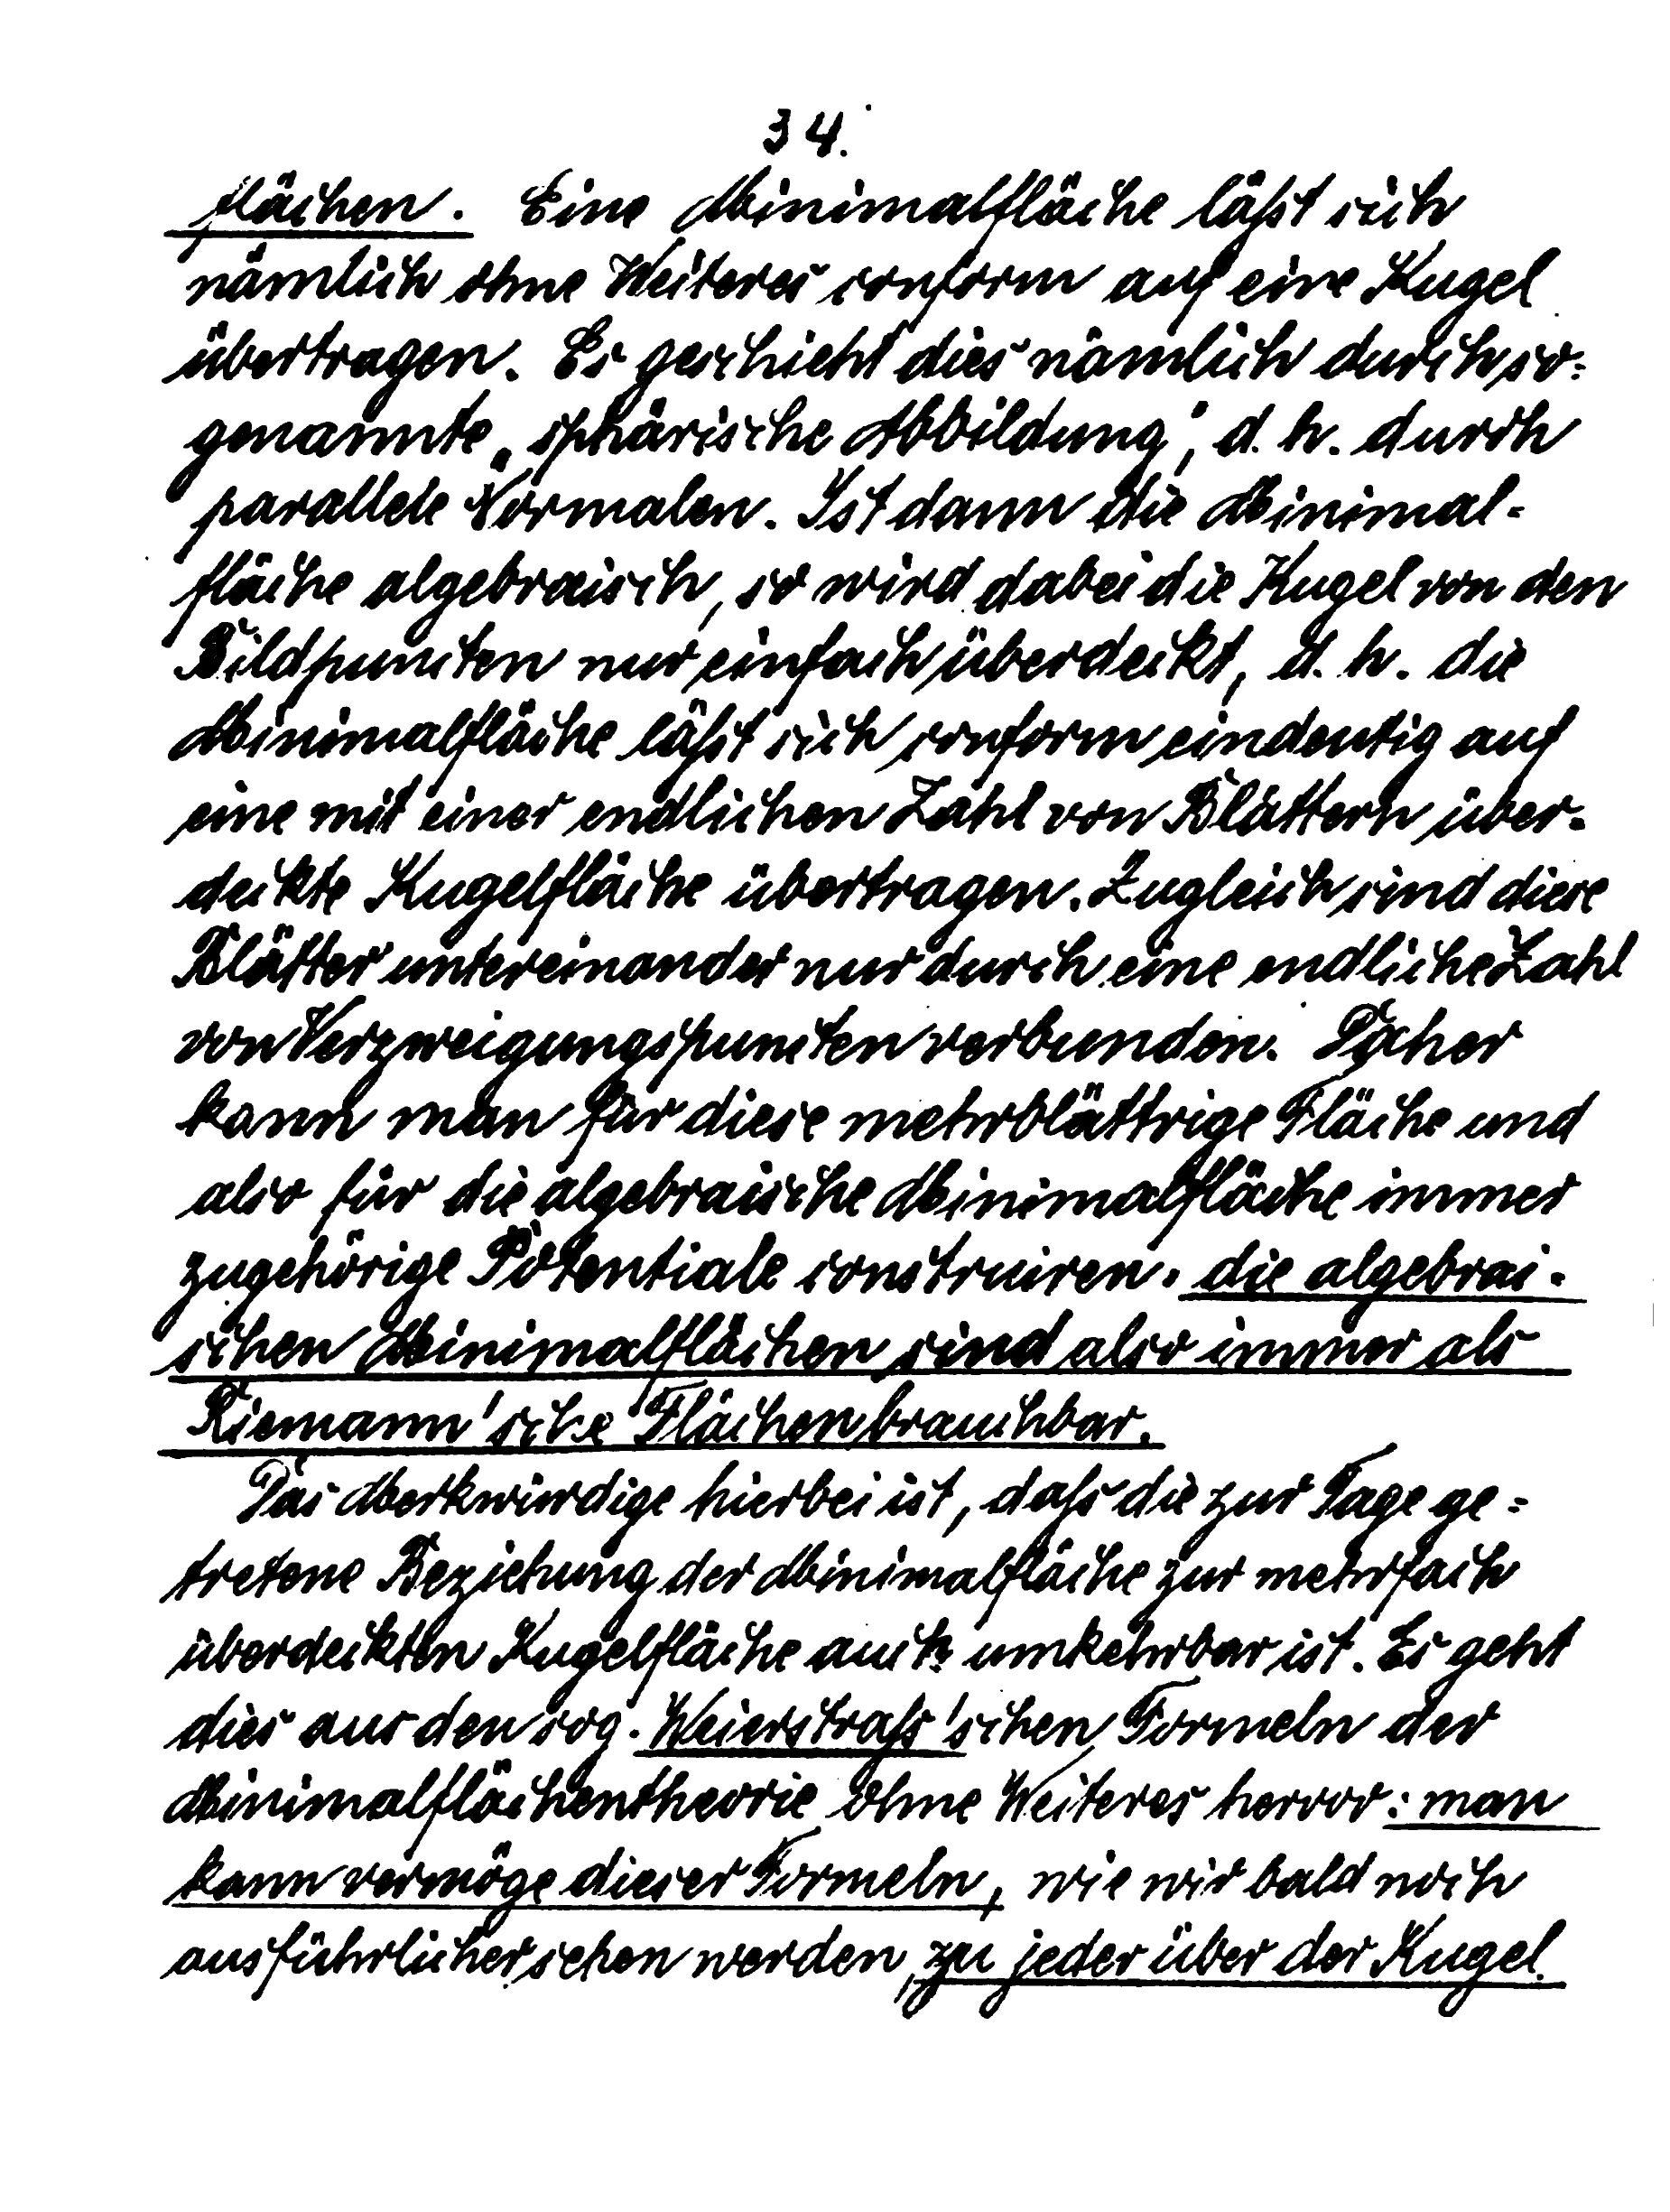 34.
flächen. Eine Minimalfläche läßt sich
nämlich ohne Weiteres conform auf eine Kugel
übertragen. Es geschieht dies nämlich durch so=
genannte „sphärische Abbildung", d. h. durch
parallele Normalen. Ist dann die Minimal-
fläche algebraisch, so wird dabei die Kugel von den
Bildpuncten nur einfach überdeckt, d. h. die
Minimalfläche läßt sich conform eindeutig auf
eine mit einer endlichen Zahl von Blättern über-
deckte Kugelfläche übertragen. Zugleich sind diese
Blätter untereinander nur durch eine endliche Zahl
von Verzweigungspuncten verbunden. Daher
kann man für diese mehrblättrige Fläche und
also für die algebraische Minimalfläche immer
zugehörige Potentiale construiren. die algebrai-
schen Minimalflächen sind also immer als
Riemann'sche Flächen brauchbar.
Das Merkwürdige hierbei ist, daß die zur Tage ge=
tretene Beziehung der Minimalfläche zur mehrfach
überdeckten Kugelfläche auch umkehrbar ist. Es geht
dies aus den sog. Weierstraß'schen Formeln der
Minimalflächentheorie ohne Weiteres hervor: man
kann vermöge dieser Formeln, wie wir bald noch
ausführlicher sehen werden, zu jeder über der Kugel